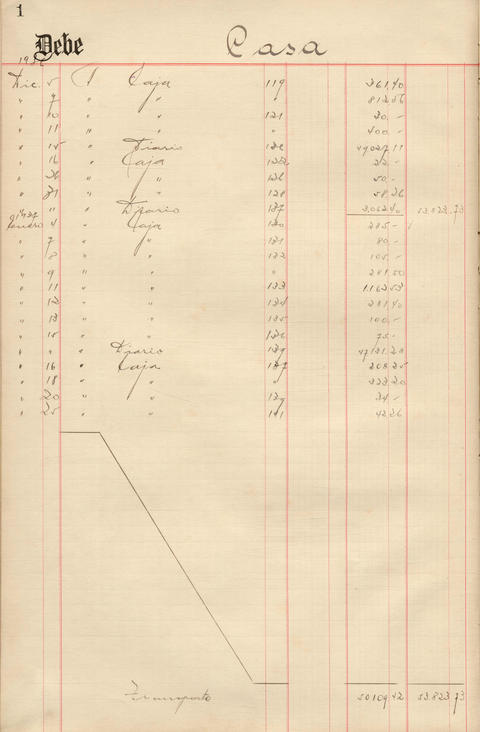 1
Debe Casa
1936
Dic. 5 A Caja 119 361,40
" 9 " " " 812,56
" 10 " " 121 30,-
" 11 " " " 400,-
" 15 " Diario 126 49027,11
" 16 " Caja 122 22,-
" 26 " " 126 50,-
" 31 " " 128 58,26
" " " Diario 137 3,062,40 53.823,73
1937
Enero 4 " Caja 130 285,-
" 7 " " 131 80,-
" 8 " " 132 105,-
" 9 " " " 281,50
" 11 " " 133 1.162,53
" 12 " " 134 281,40
" 13 " " 135 100,-
" 15 " " 136 75,-
" " " Diario 139 47131,28
" 16 " Caja 137 208,25
" 18 " " " 323,20
" 20 " " 139 34,-
" 25 " " 141 42,26
Transporte 50109,42 53.823,73